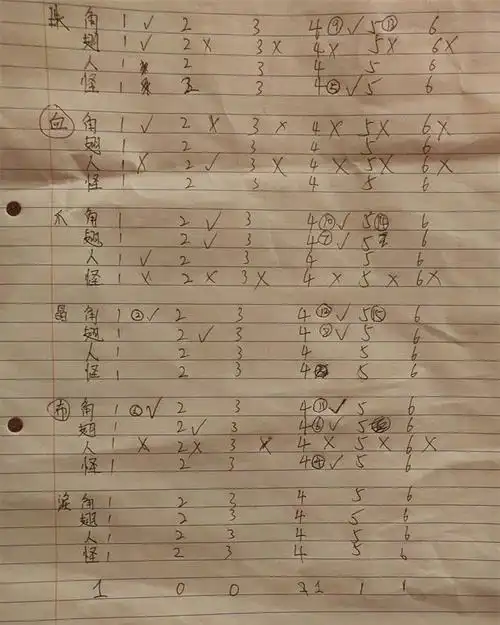 角 1 ✓ 2 3 4 ⑨ ✓ 5 ⑬ 6
翅 1 ✓ 2 × 3 × 4 × 5 × 6 ×
人 1 2 3 4 5 6
怪 1 2 3 4 ⑤ ✓ 5 6
血 角 1 ✓ 2 × 3 × 4 × 5 × 6 ×
翅 1 2 3 4 5 6
人 1 × 2 ✓ 3 × 4 × 5 × 6 ×
怪 1 2 3 4 5 6
爪 角 1 2 ✓ 3 4 ⑩ ✓ 5 ⑭ 6
翅 1 2 ✓ 3 4 ⑦ ✓ 5 6
人 1 ✓ 2 3 4 5 6
怪 1 × 2 × 3 × 4 × 5 × 6 ×
角 1 ② ✓ 2 3 4 ⑫ ✓ 5 ⑮ 6
翅 1 2 ✓ 3 4 ⑧ ✓ 5 6
人 1 2 3 4 5 6
怪 1 2 3 4 5 6
布 角 1 ✓ 2 3 4 ⑪ ✓ 5 6
翅 1 2 ✓ 3 4 ⑥ ✓ 5 6
人 1 × 2 × 3 × 4 × 5 × 6 ×
怪 1 2 3 4 ④ ✓ 5 6
角 1 2 3 4 5 6
翅 1 2 3 4 5 6
人 1 2 3 4 5 6
怪 1 2 3 4 5 6
1 0 0 1 1 1